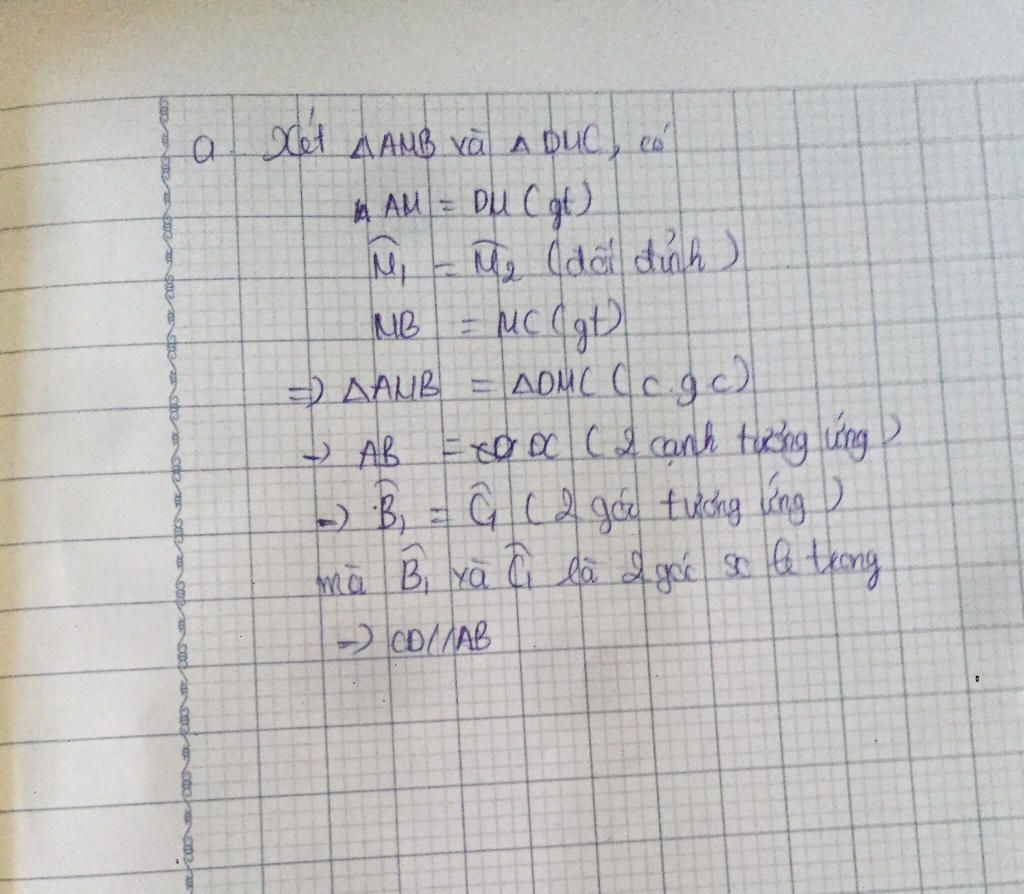 a Xét ΔAMB và ΔDMC, có
AM = DM (gt)
M̂₁ = M̂₂ (đối đỉnh)
MB = MC (gt)
=> ΔAMB = ΔDMC (c.g.c)
-> AB = DC (2 cạnh tương ứng)
-> B̂₁ = Ĉ₁ (2 góc tương ứng)
mà B̂₁ và Ĉ₁ là 2 góc so le trong
-> CD//AB